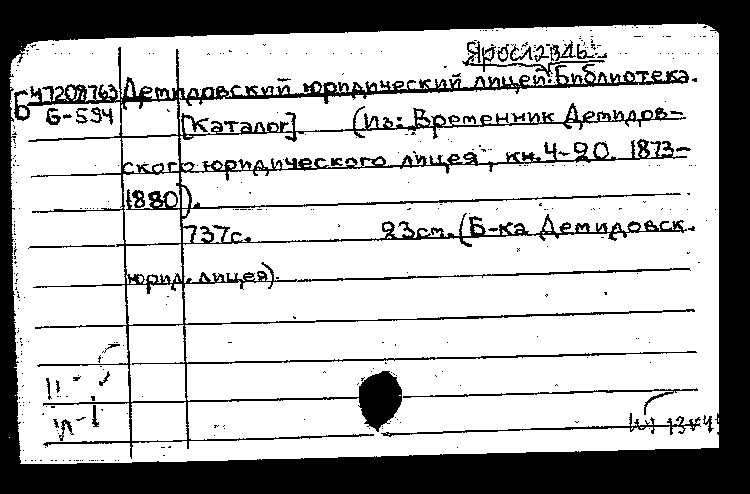 Ярославль.
Б 47208763 Демидовский юридический лицей. Библиотека.
Б-594
[Каталог]. (Из: „Временник Демидов-
ского юридического лицея", кн. 4-20. 1873-
1880).
737с. 23см. (Б-ка Демидовск.
юрид. лицея).